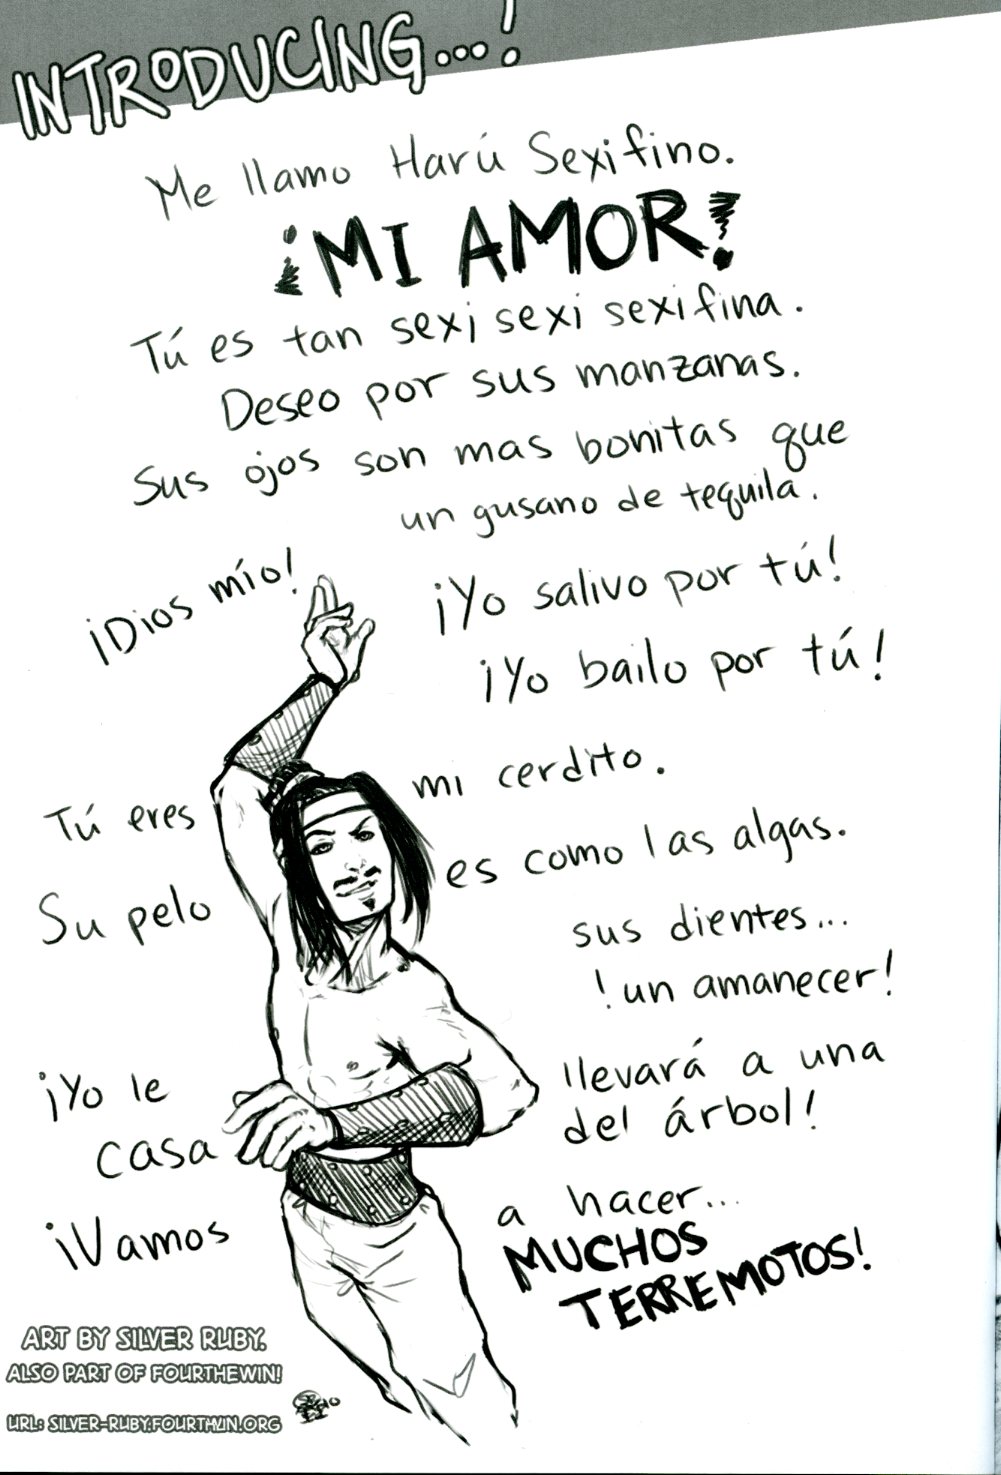 INTRODUCING...!
Me llamo Harú Sexifino.
¡MI AMOR!
Tú es tan sexi sexi sexifina.
Deseo por sus manzanas.
Sus ojos son mas bonitas que
un gusano de tequila.
¡Dios mío!
¡Yo salivo por tú!
¡Yo bailo por tú!
Tú eres mi cerdito.
Su pelo es como las algas.
sus dientes...
!un amanecer!
¡Yo le llevará a una
casa del árbol!
¡Vamos a hacer...
MUCHOS
TERREMOTOS!
ART BY SILVER RUBY.
ALSO PART OF FOURTHEWIN!
URL: SILVER-RUBY.FOURTHWIN.ORG